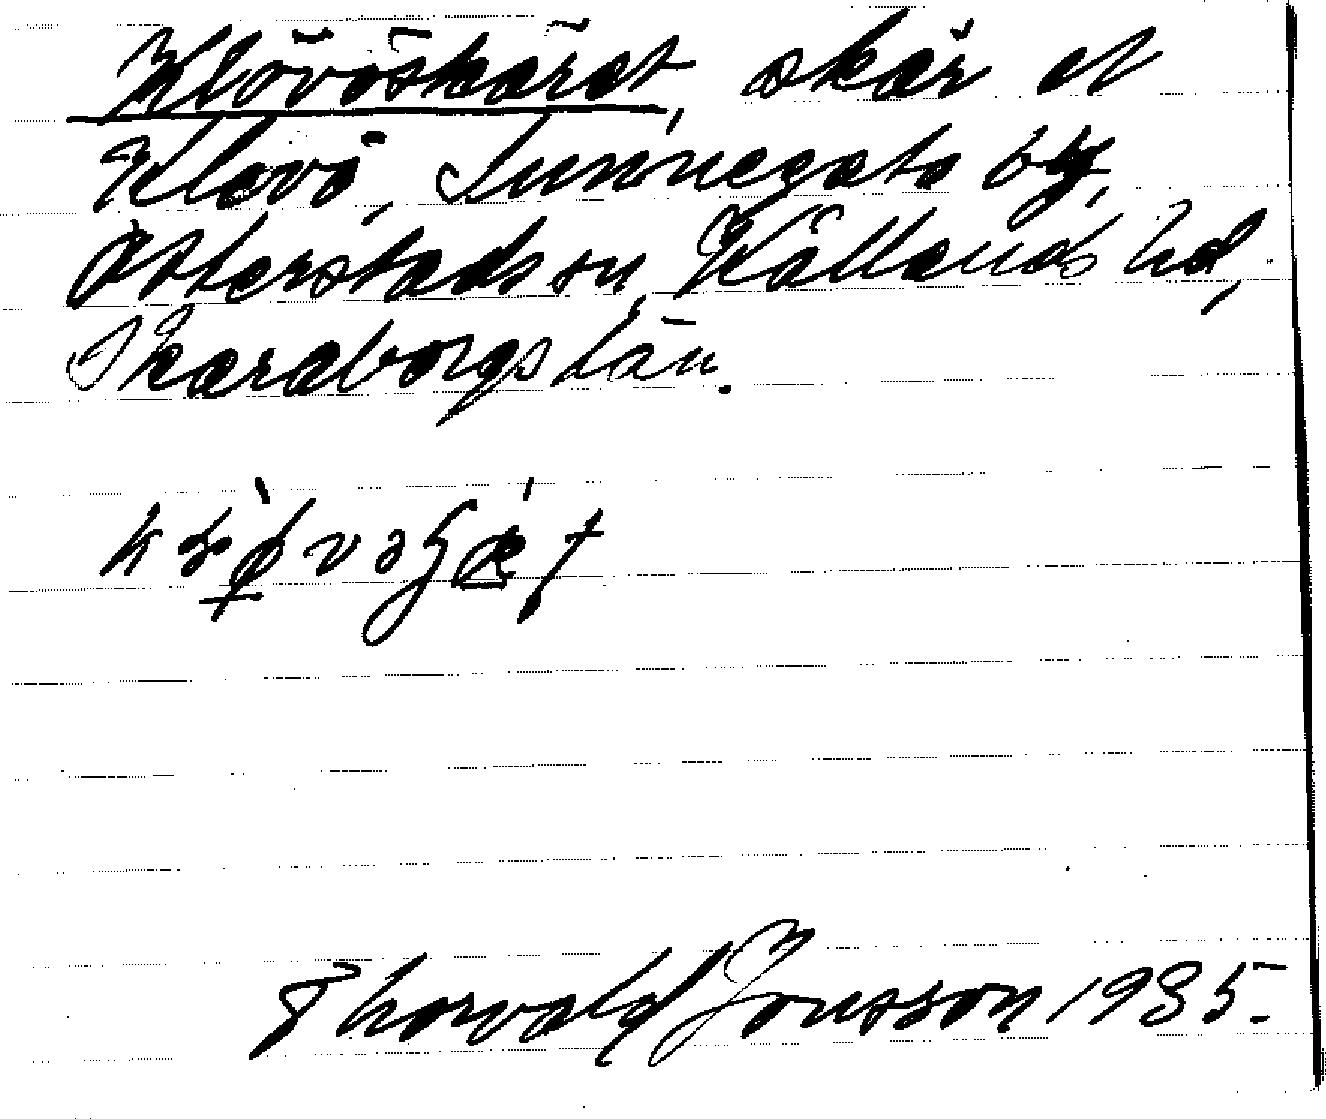 Klövöskäret, skär vt
Klövö, Sunnegato by,
Otterstads sn, Kållands hd,
Skaraborgs län.
Thorvald Jonsson 1935.